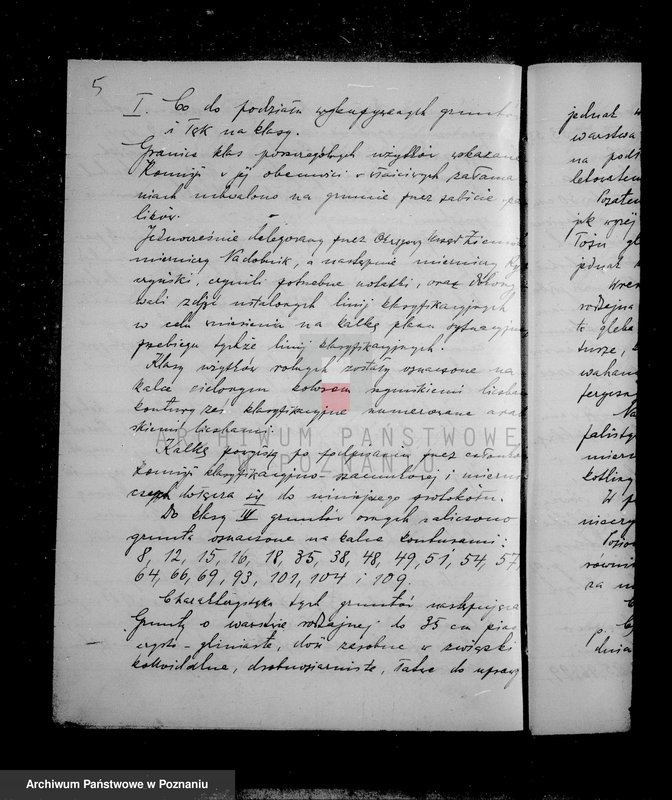 5
I. Co do podziału wykupywanych gruntów
i łąk na klasy.
Granice klas poszczególnych użytków wskazane
Komisji w jej obecności w załama
niach utrwalono na gruncie przez zabicie pa
lików.
Jednocześnie delegowany przez Okręgowy Urząd Ziemski
mierniczy Nadobnik, a następnie mierniczy
czyński, czynili potrzebne notatki, oraz dokony
wali zdjęć ustalonych linij klasyfikacyjnych
w celu wniesienia na kalkę planu sytuacyjnego
przebiegu tychże linij klasyfikacyjnych.
Klasy użytków rolnych zostały oznaczone na
kalce zielonym kolorem rzymskiemi liczbami
kontury zaś klasyfikacyjne numerowane arab
skiemi liczbami.
Kalkę powyższą po podpisaniu przez członków
Komisji klasyfikacyjno szacunkowej i mierni
czego dołącza się do niniejszego protokółu.
Do klasy III gruntów ornych zaliczono
grunta oznaczone na kalce konturami:
8, 12, 15, 16, 18, 35, 38, 48, 49, 51, 54, 57,
64, 66, 69, 93, 101, 104 i 109.
Charakterystyka tych gruntów następująca
Grunty o warstwie rodzajnej do 35 cm piasz
czysto-gliniaste, dość zasobne w związki
koloidalne, drobnoziarniste, łatwe do uprawy
jednak
warstwa
na pod
jak wyżej
jednak
rodzajna
to gleba
falisty
mierni
kotliny
W p
rowni
za
dnia
ARCHIWUM PAŃSTWOWE
W POZNANIU
Archiwum Państwowe w Poznaniu